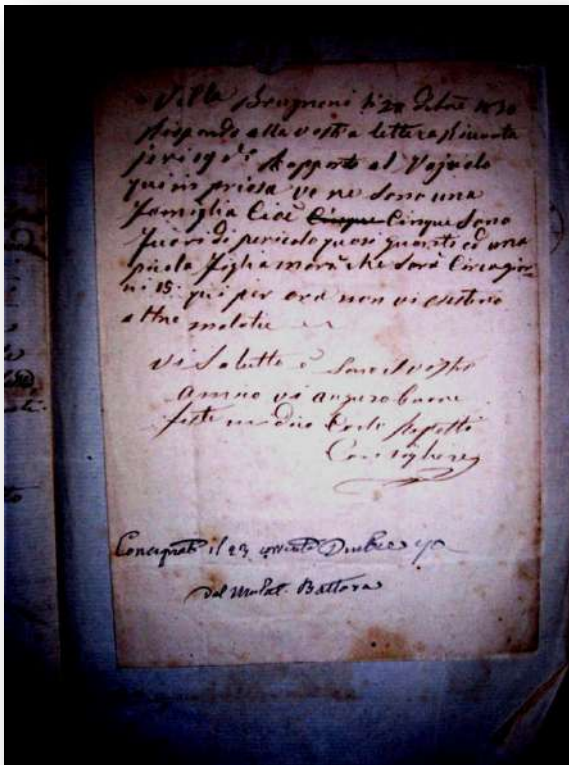 Villa Brugneni li 22 Debre 1830
Rispondo alla vostra lettera
jeri Rapporto al Vajuolo
qui in ve ne sono una
famiglia Cioè Cinque Cinque sono
fuori di pericolo quasi guariti ed una
picola figlia morì che sarà Circa gior-
ni 15. qui per ora non vi esistono
altre malatie
Vi saluto e sono il vostro
amico vi auguro buone
feste Carlo Repetti
Consigliere
il 23 corrente Dicembre
dal Mulat. Battara